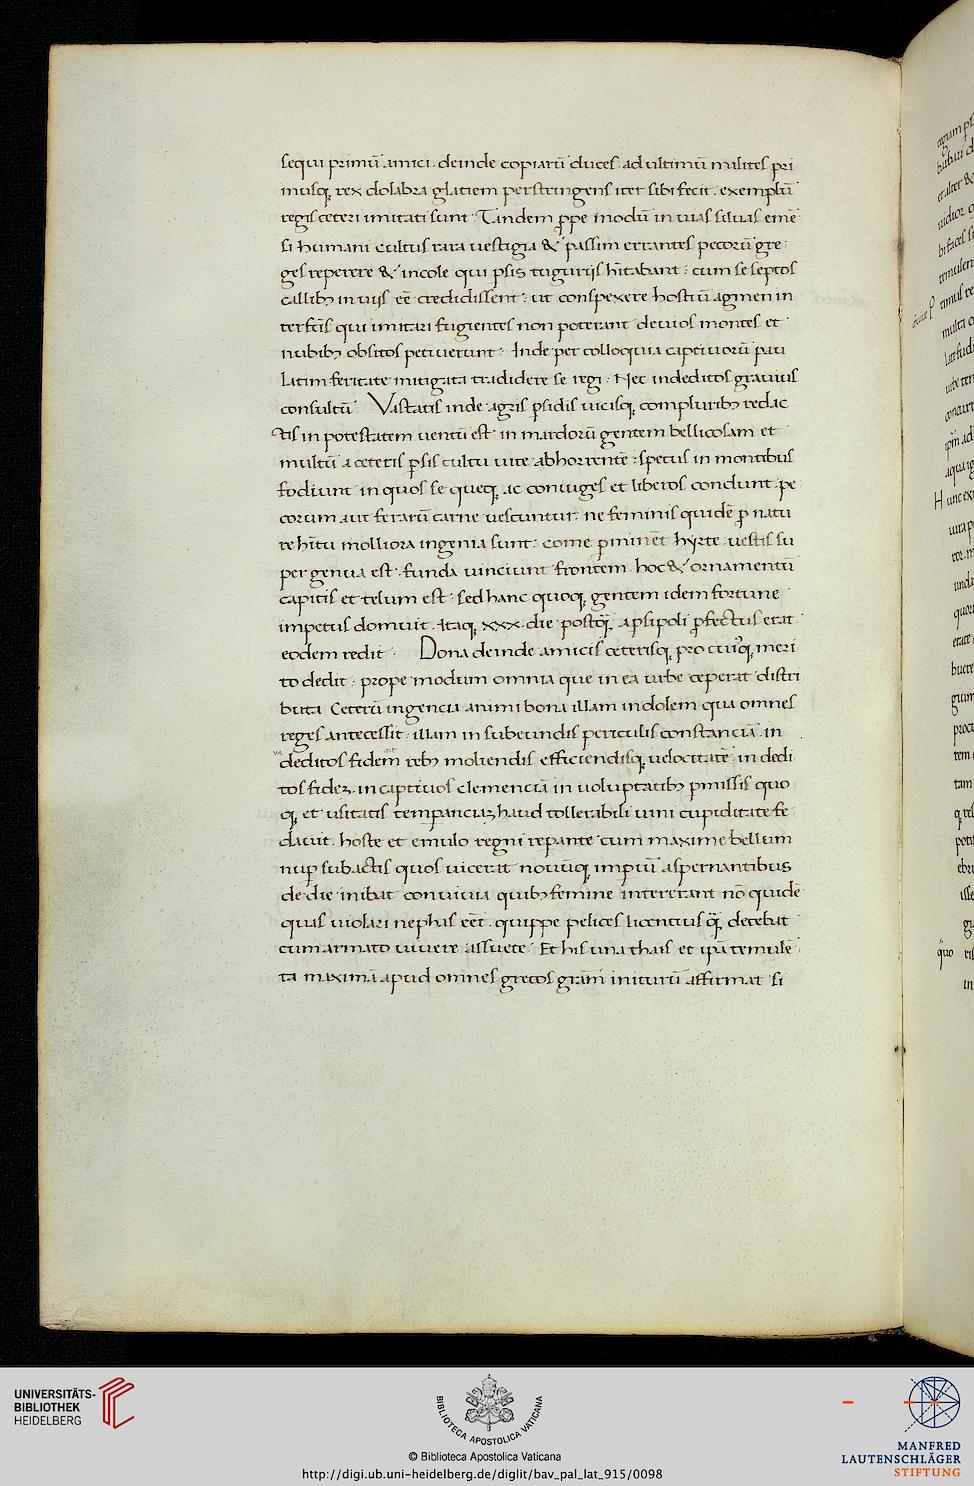 sequi primū amici. deinde copiarū duces. ad ultimū milites pri
musq; rex dolabra glatiem perstringens iter sibi fecit. exemplū
regis ceteri imitati sunt. Tandem ꝓpe modū in uias siluas eme
si humani cultus rara uestigia & passim errantes pecorū gre
ges reperere & incole qui ꝑsis tugurijs hītabant: cum se septos
callibꝫ in uijs eē credidissent: ut conspexere hostiū agmen in
terfc̄is qui imitari fugientes non poterant deuios montes et
nubibꝫ obsitos petiuerunt. Inde per colloquia captiuorū pau
latim feritate mitigata tradidere se regi. Nec indeditos grauius
consultū. Vastatis inde agris ꝑsidis uicisq; compluribꝫ redac
tis in potestatem uentū est in mardorū gentem bellicosam et
multū a ceteris ꝑsis cultu uite abhorrentē: specus in montibus
fodiunt in quos se queq; ac coniuges et liberos condunt. pe
corum aut ferarū carne uescuntur. ne feminis quidē ꝓ natu
re hītu molliora ingenia sunt. come ꝓminēt hyrte. uestis su
per genua est. funda uinciunt frontem. hoc & ornamentū
capitis et telum est. sed hanc quoq; gentem idem fortune
impetus domuit. Itaq; xxx. die postq̄. a ꝑsipoli ꝓfectus erat
eodem redit. Dona deinde amicis ceterisq; pro cuiꝰq; meri
to dedit. prope modum omnia que in ea urbe ceperat distri
buta. Ceterū ingencia animi bona illam indolem qua omnes
reges antecessit. illam in subeundis periculis constanciā. in
deditos fidem rebꝫ moliendis efficiendisq; uelocitatē. in dedi
tos fideꝫ. in captiuos clemenciā in uoluptatibꝫ ꝑmissis quo
q; et usitatis temꝑanciaꝫ haud tollerabili uini cupiditate fe
dauit. hoste et emulo regni repante cum maxime bellum
nuꝑ subactis quos uicerat nouūq; imꝑiū aspernantibus
de die inibat conuiuia quibꝫ femine intererant nō quidē
quas uiolari nephas eēt. quippe pelices licentius q̄. decebat
cum armato uiuere assuete. Et his una thais et ip̄a temulē
ta maximā apud omnes grecos grām inituru affirmat si
UNIVERSITÄTS-
BIBLIOTHEK
HEIDELBERG
BIBLIOTECA APOSTOLICA VATICANA
© Biblioteca Apostolica Vaticana
http://digi.ub.uni-heidelberg.de/diglit/bav_pal_lat_915/0098
MANFRED
LAUTENSCHLÄGER
STIFTUNG